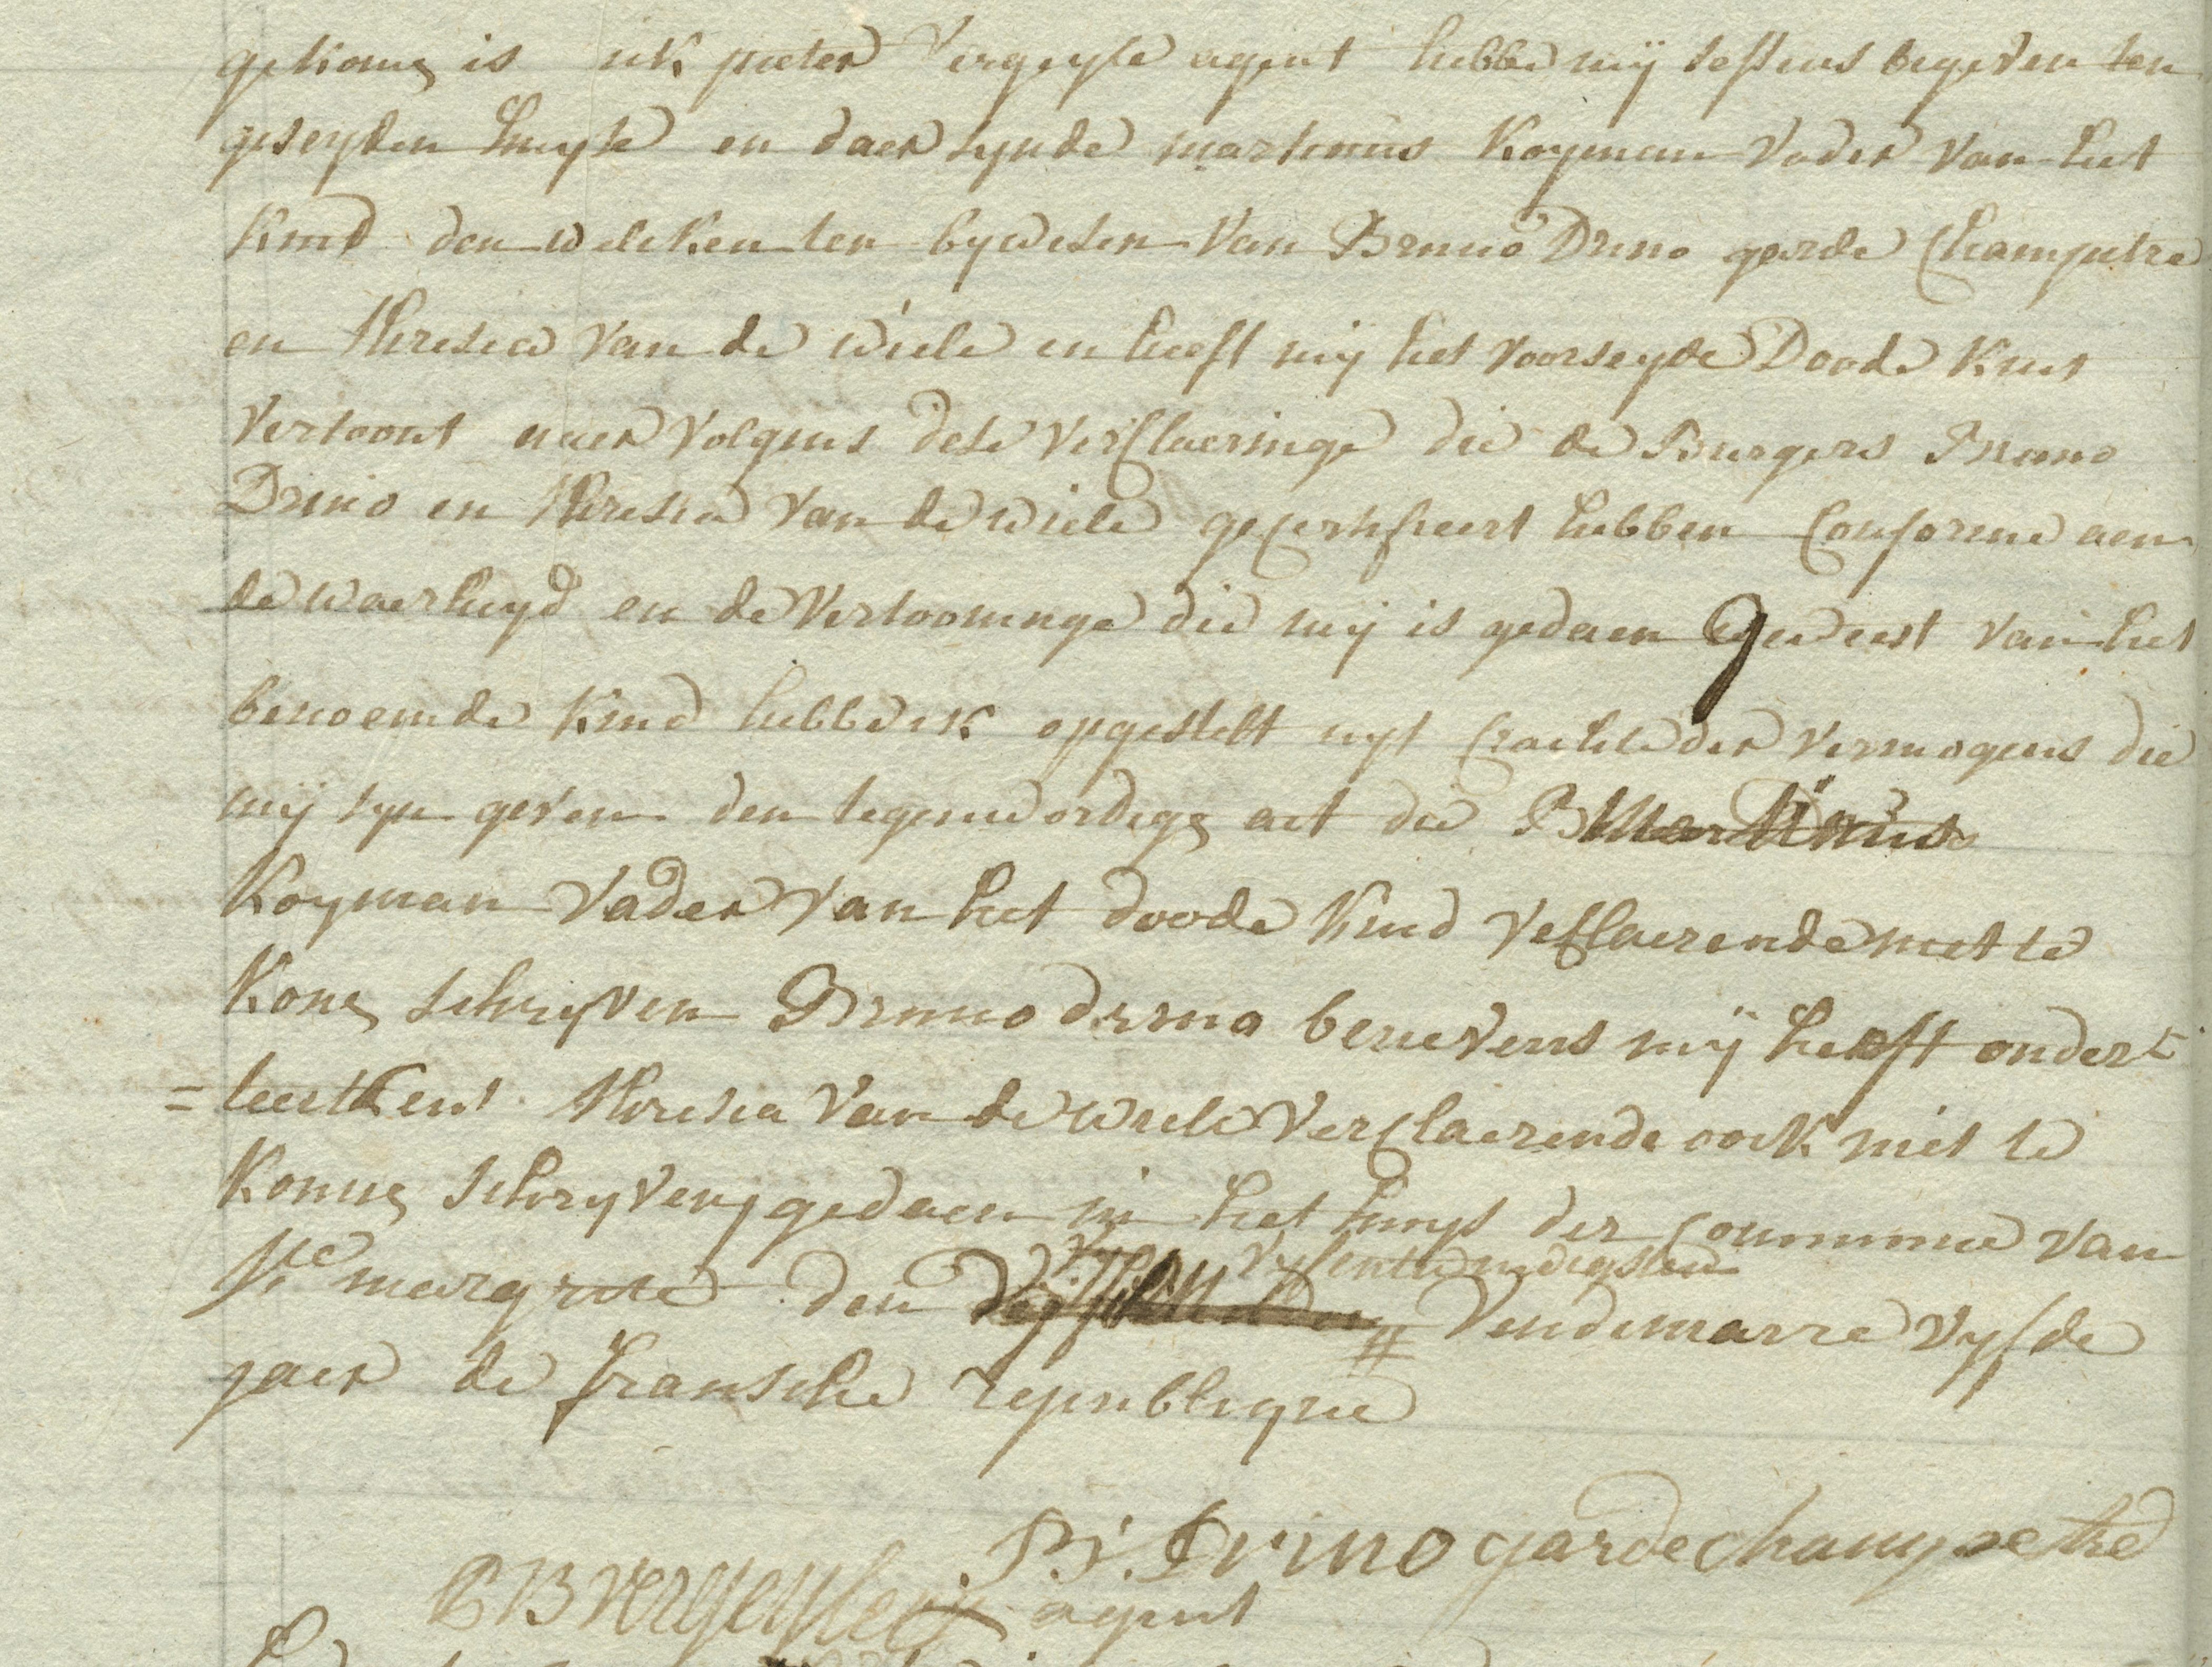 gekomg is ick pieter Vergeyle agent hebbe mij teftens begeven ten
geseyden huyse en daer synde martinus Koyman Vader Van het
kind den welcken ten bywesen Van Bruno Drino garde Champetre
en Theresia Van de wiele en heeft mij het voorseyde Doode Kint
Vertoont naer Volgens dese Verclaeringe die de Burgers Bruno
Drino en Theresia Van de wiele gecertifieert hebben Conforme aen
de waerheyd en de Vertooninge die mij is gedaen geweest van het
benoemde kind hebbe ick opgestelt uyt crachte der Vermogens die
mij syn geven den tegenwordigg act die B Martinus
Koyman Vader Van het doode kind Veclaerende niet te
Kong schryven Bruno drino benevens mij heeft onder
= teeckent Theresia Van de wiele Verclaerende oock niet te
Konng schryveng gedaen in het huys der commune van
Vyfentwindigsten
Ste margriete den Vendemiarre vyfde
jaer de fransche republique
B. Drino garde champeetre
P B vergeyle agent